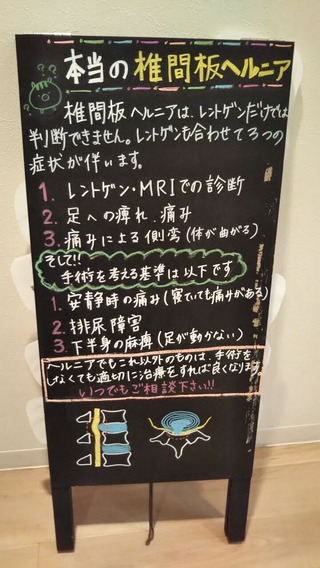 本当の椎間板ヘルニア
椎間板ヘルニアは、レントゲンだけでは
判断できません。レントゲンも合わせて3つの
症状が伴います。
1. レントゲン・MRIでの診断
2. 足への痺れ、痛み
3. 痛みによる側弯(体が曲がる)
そして!!
手術を考える基準は以下です
1. 安静時の痛み(寝ていても痛みがある)
2. 排尿障害
3. 下半身の麻痺(足が動かない)
ヘルニアでもこれ以外のものは、手術を
しなくても適切に治療をすれば良くなります。
いつでもご相談下さい!!